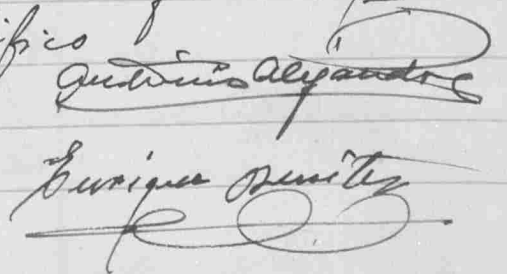 ifico
Antonio Alejandre
Enrique Benitez